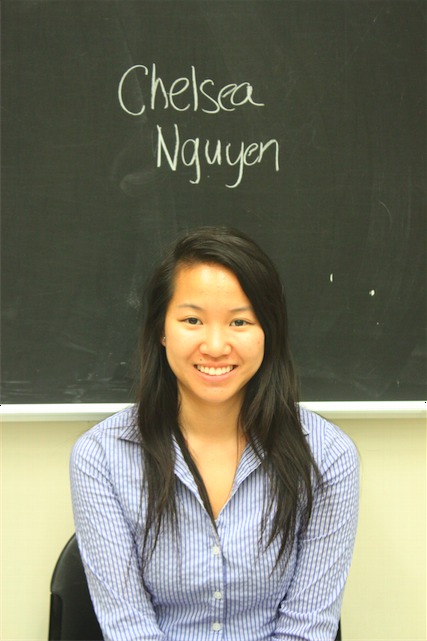 Chelsea
Nguyen